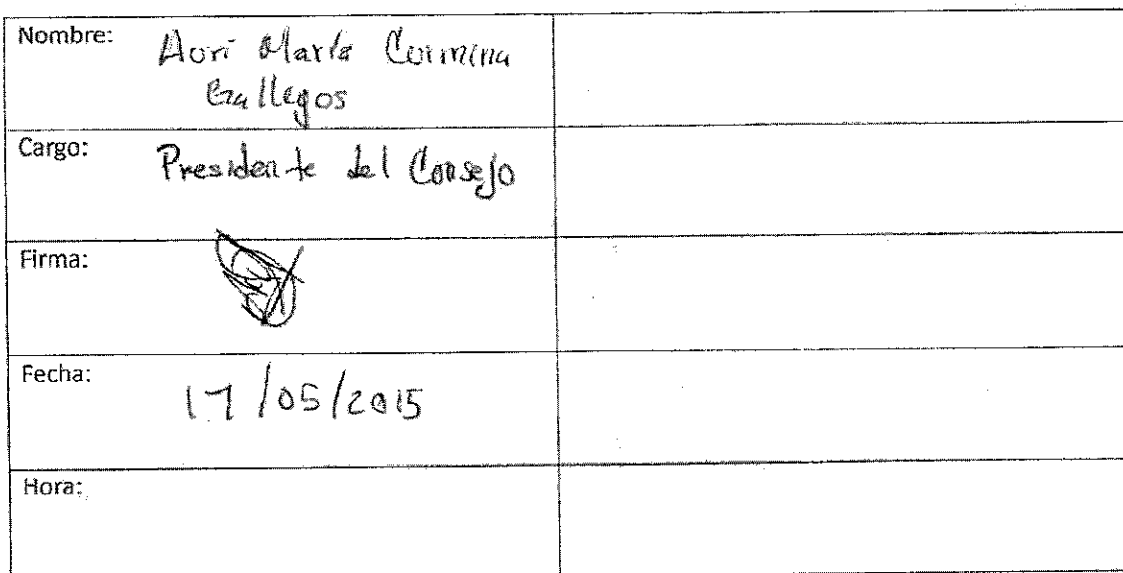 Nombre:
María
Gallegos
Cargo:
Presidente del Consejo
Firma:
Fecha:
17/05/2015
Hora: